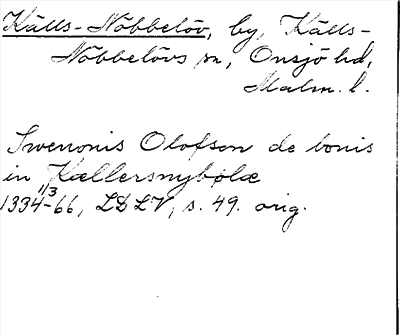 Källs-Nöbbelöv, by, Källs-
Nöbbelövs sn, Onsjö hd,
Malm. l.
Swenonis Olofson de bonis
in Kællersnybølæ
1334-66, 1/3 LDLV, s. 49. orig.